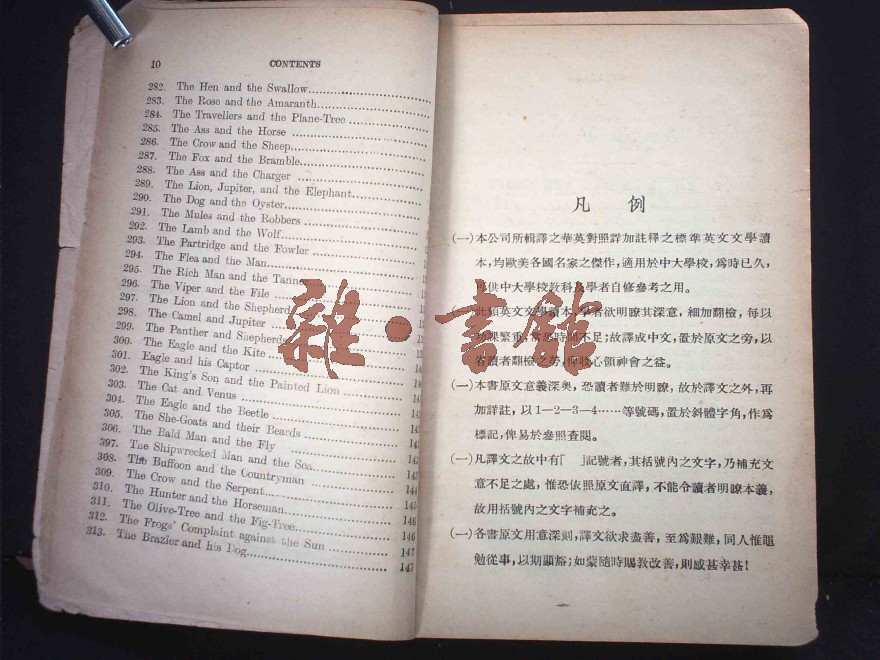 10 CONTENTS
282. The Hen and the Swallow
283. The Rose and the Amaranth
284. The Travellers and the Plane-Tree
285. The Ass and the Horse
286. The Crow and the Sheep
287. The Fox and the Bramble
288. The Ass and the Charger
289. The Lion, Jupiter, and the Elephant
290. The Dog and the Oyster
291. The Mules and the Robbers
292. The Lamb and the Wolf
293. The Partridge and the Fowler
294. The Flea and the Man
295. The Rich Man and the Tanner
296. The Viper and the File
297. The Lion and the Shepherd
298. The Camel and Jupiter
299. The Panther and Shepherds
300. The Eagle and the Kite
301. Eagle and his Captor
302. The King's Son and the Painted Lion
303. The Cat and Venus
304. The Eagle and the Beetle
305. The She-Goats and their Beards
306. The Bald Man and the Fly
397. The Shipwrecked Man and the Sea
308. The Buffoon and the Countryman 144
309. The Crow and the Serpent 145
310. The Hunter and the Horseman 146
311. The Olive-Tree and the Fig-Tree 146
312. The Frogs' Complaint against the Sun 147
313. The Brazier and his Dog 147
凡例
(一)本公司所輯譯之華英對照詳加註釋之標準英文文學讀
本,均歐美各國名家之傑作,適用於中大學校,爲時已久,
可供中大學校敎科及學者自修參考之用。
此類英文文學讀本,學者欲明瞭其深意,細加翻檢,每以
功課繁重,常恐時間不足;故譯成中文,置於原文之旁,以
省讀者翻檢之勞,俾收心領神會之益。
(一)本書原文意義深奧,恐讀者難於明瞭,故於譯文之外,再
加詳註,以1—2—3—4……等號碼,置於斜體字角,作爲
標記,俾易於參照查閱。
(一)凡譯文之故中有「 」記號者,其括號內之文字,乃補充文
意不足之處,惟恐依照原文直譯,不能令讀者明瞭本義,
故用括號內之文字補充之。
(一)各書原文用意深刻,譯文欲求盡善,至爲艱難,同人惟黽
勉從事,以期顯豁;如蒙隨時賜敎改善,則感甚幸甚!
雜·書館